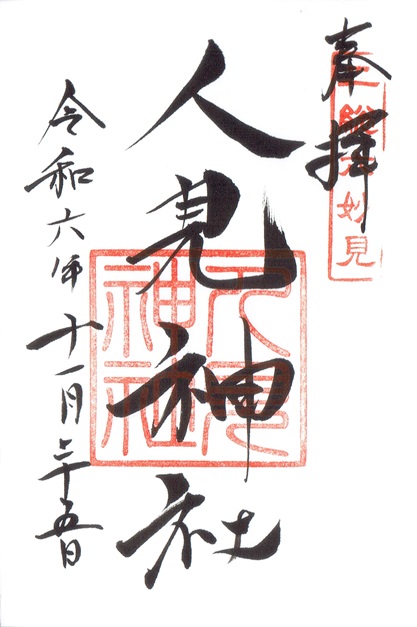 奉拝
妙見
人見神社
人見神社
令和六年十一月二十五日